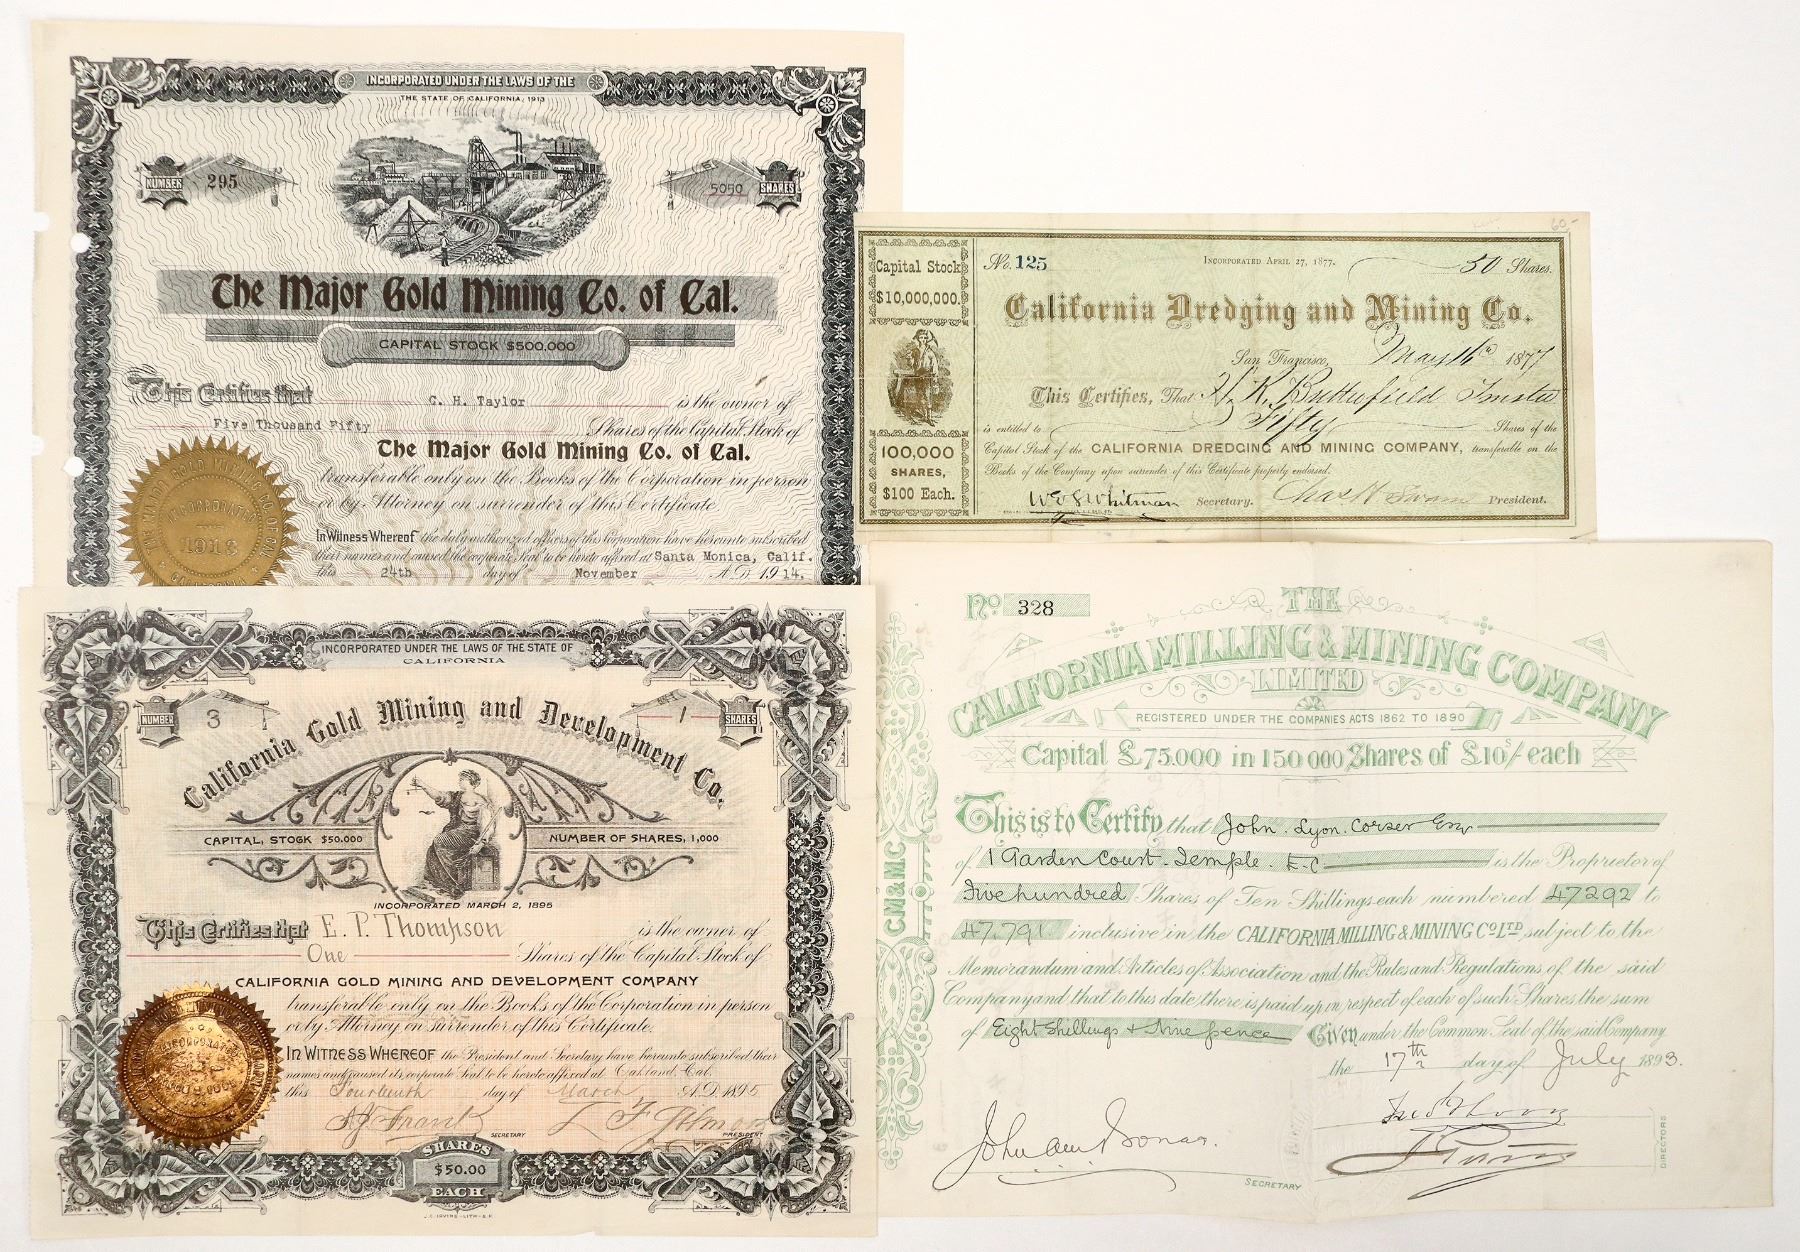 INCORPORATED UNDER THE LAWS OF THE
THE STATE OF CALIFORNIA, 1913
NUMBER 295
5050 SHARES
The Major Gold Mining Co. of Cal.
CAPITAL STOCK $500,000
This Certifies that C. H. Taylor is the owner of
Five Thousand Fifty Shares of the Capital Stock of
The Major Gold Mining Co. of Cal.
transferable only on the Books of the Corporation in person
or by Attorney on surrender of this Certificate.
In Witness Whereof the duly authorized officers of this Corporation have hereunto subscribed
their names and caused the corporate Seal to be hereto affixed at Santa Monica, Calif.
this 24th day of November A.D. 1914.
THE MAJOR GOLD MINING CO. OF CAL.
INCORPORATED
1913
CALIFORNIA
60-
Capital Stock
$10,000,000.
100,000
SHARES,
$100 Each.
No. 125
INCORPORATED APRIL 27, 1877.
50 Shares.
California Dredging and Mining Co.
San Francisco, May 16th 1877
This Certifies, That H. K. Butterfield Trustee
is entitled to Fifty Shares of the
Capital Stock of the CALIFORNIA DREDGING AND MINING COMPANY, transferable on the
Books of the Company upon surrender of this Certificate properly endorsed.
Whitman Secretary. Chas H Swain President.
INCORPORATED UNDER THE LAWS OF THE STATE OF
CALIFORNIA
NUMBER 3
1 SHARES
California Gold Mining and Development Co.
CAPITAL, STOCK $50.000
NUMBER OF SHARES, 1,000
INCORPORATED MARCH 2, 1895
This Certifies that E. P. Thompson is the owner of
One Shares of the Capital Stock of
CALIFORNIA GOLD MINING AND DEVELOPMENT COMPANY
transferable only on the Books of the Corporation in person
or by Attorney on surrender of this Certificate.
IN WITNESS WHEREOF the President and Secretary have hereunto subscribed their
names and caused its corporate Seal to be hereto affixed at Oakland, Cal.
this Fourteenth day of March A.D. 1895
Frank SECRETARY
PRESIDENT
SHARES
$50.00
EACH
J.C. IRVINE-LITH-S.F.
No 328
THE
CALIFORNIA MILLING & MINING COMPANY
LIMITED
REGISTERED UNDER THE COMPANIES ACTS 1862 TO 1890
Capital £75.000 in 150 000 Shares of £10s/- each
CM&MC
This is to Certify that John Lyon Corser Esq
of 1 Garden Court Temple E-C is the Proprietor of
Five hundred Shares of Ten Shillings each numbered 47292 to
47.791 inclusive in the CALIFORNIA MILLING & MINING CO LTD subject to the
Memorandum and Articles of Association and the Rules and Regulations of the said
Company and that to this date there is paid up in respect of each of such Shares the sum
of Eight Shillings & Nine pence Given under the Common Seal of the said Company
the 17th day of July 1893.
John
SECRETARY
DIRECTORS